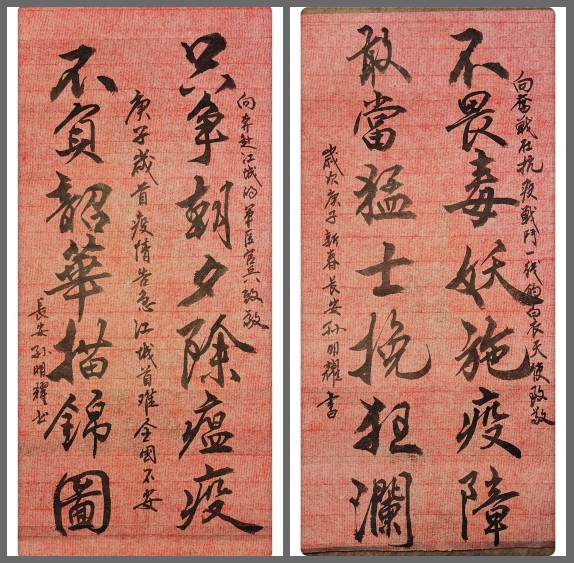 向奔赴江城的軍医官兵致敬
只争朝夕除瘟疫
庚子歲首疫情告急江城首难全國不安
不負韶華描錦圖
長安孙明耀书
向奮战在抗疫戰鬥一线的白衣天使致敬
不畏毒妖施疫障
敢當猛士挽狂瀾
歲次庚子新春長安孙明耀書